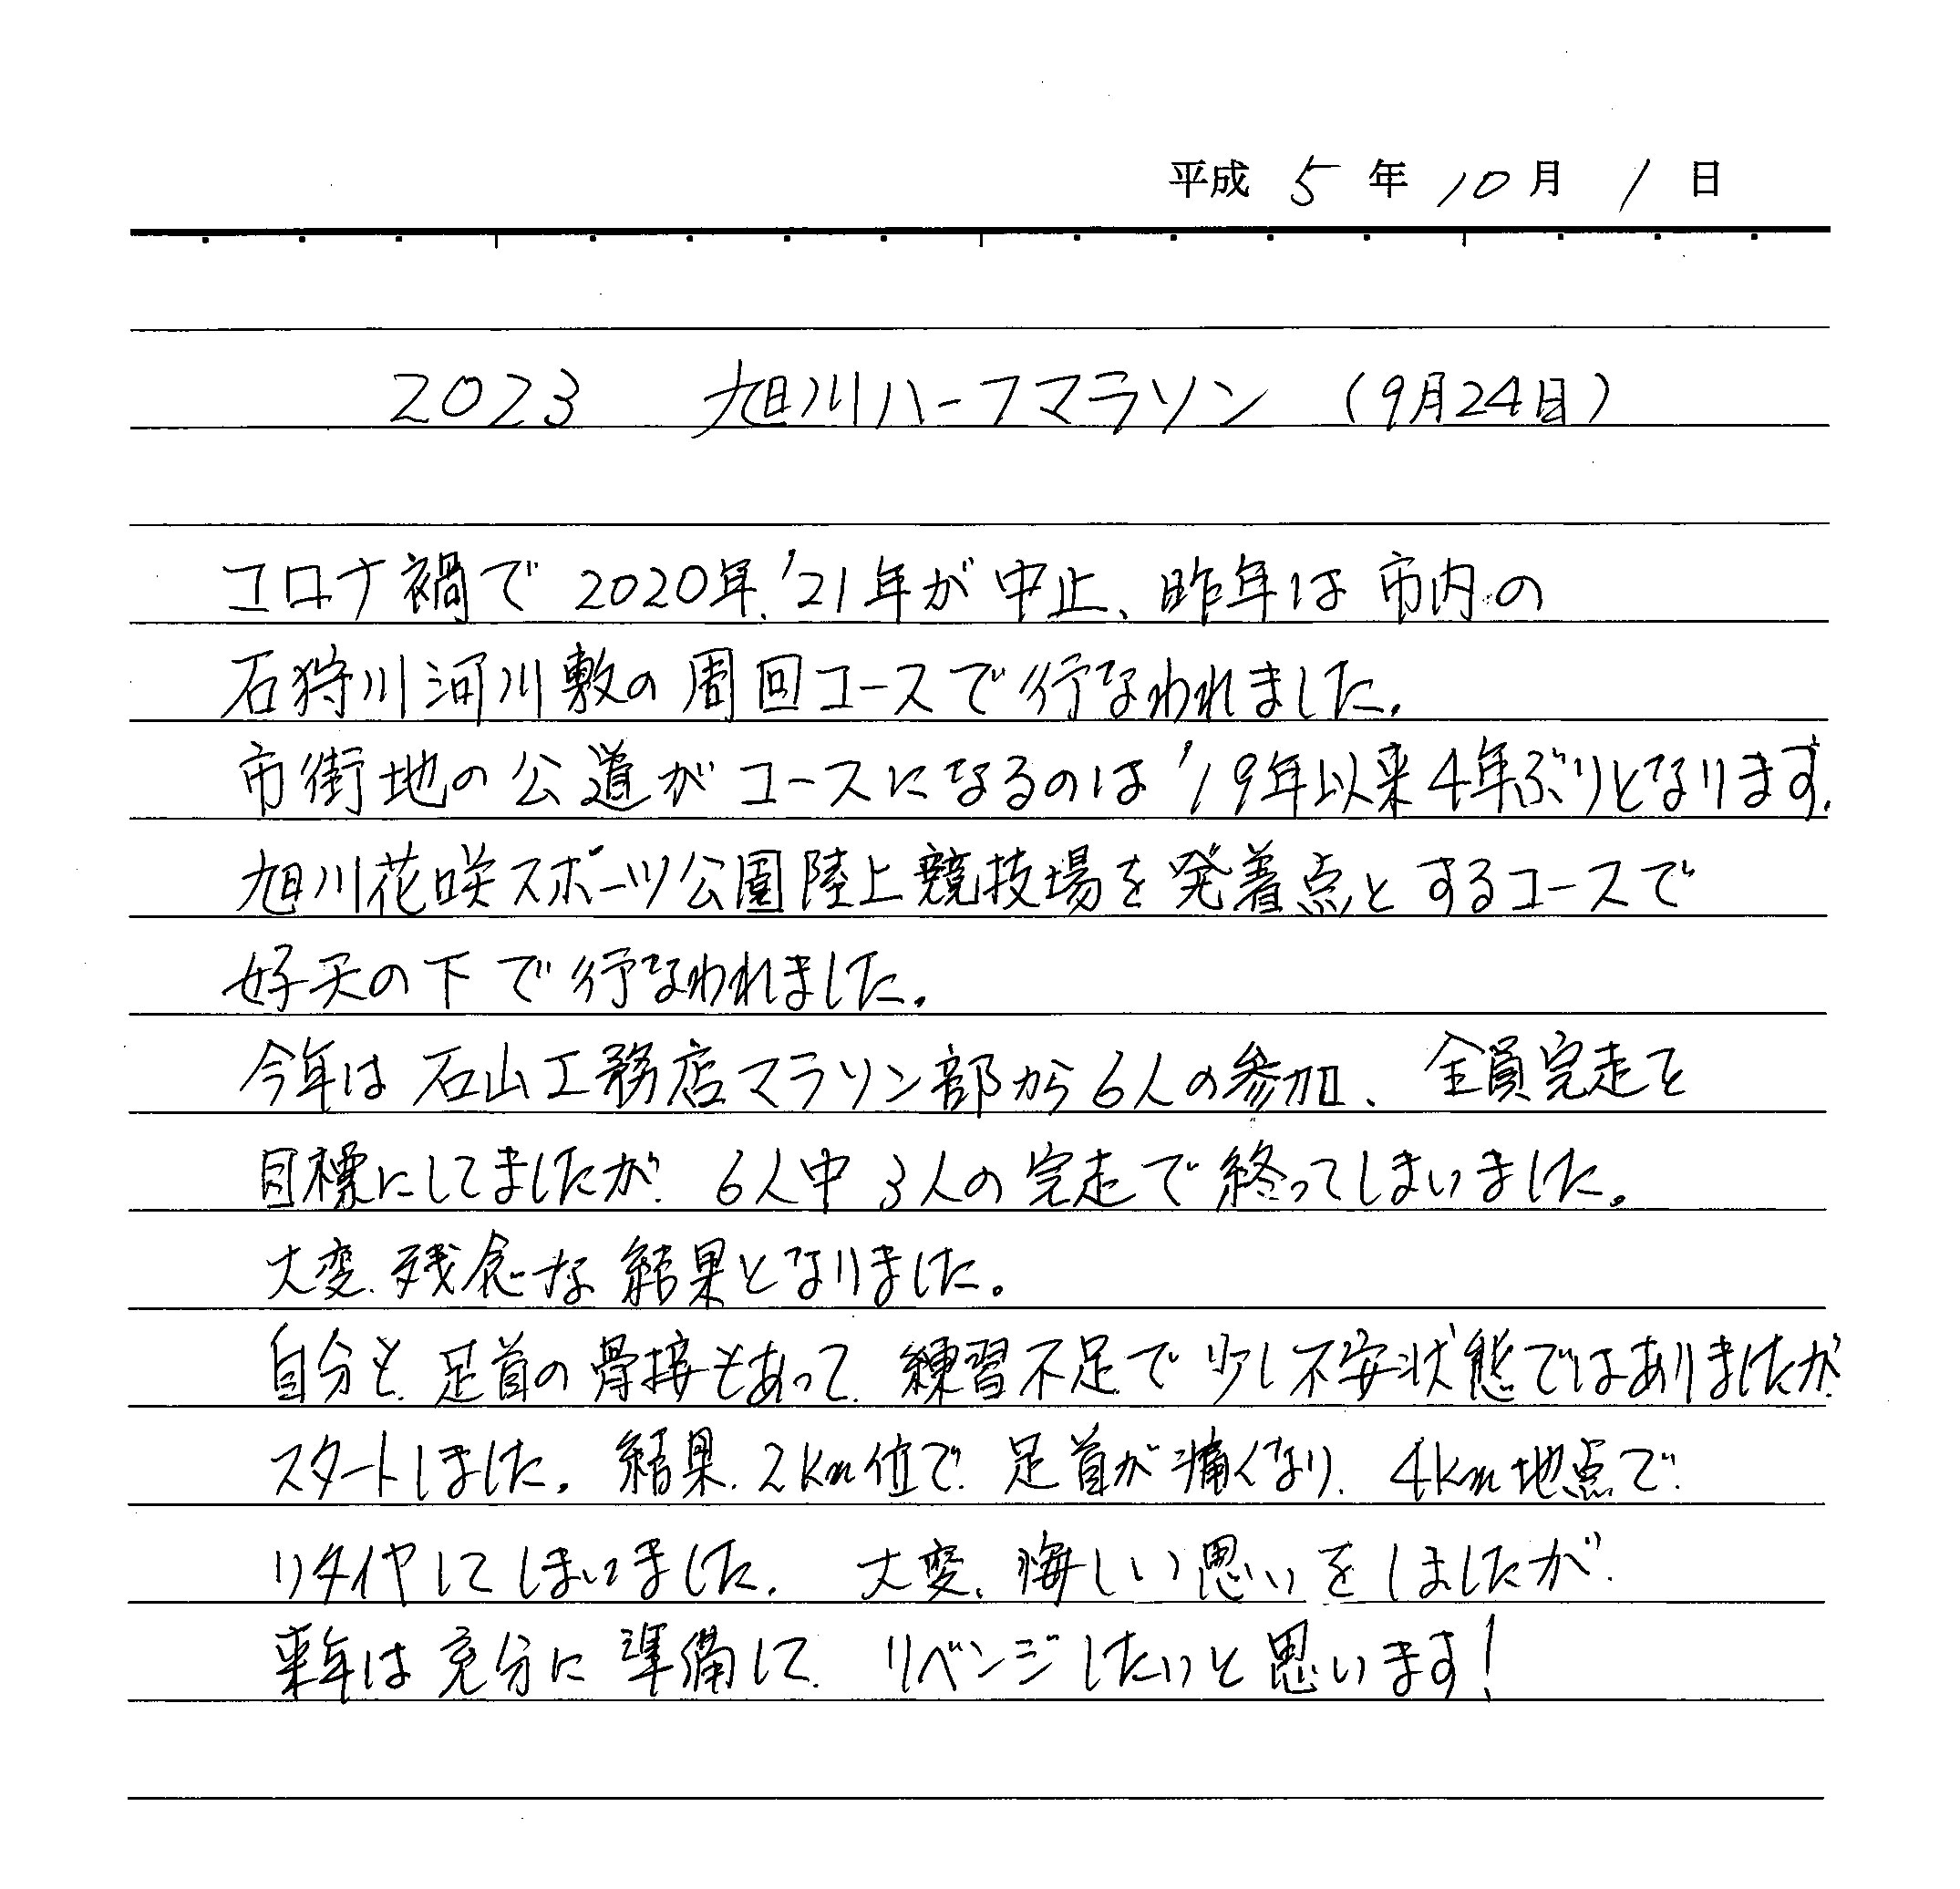 平成 5 年 10 月 1 日
2023 旭川ハーフマラソン (9月24日)
コロナ禍で 2020年、'21年が中止、昨年は市内の
石狩川河川敷の周回コースで行なわれました。
市街地の公道がコースになるのは'19年以来4年ぶりとなります。
旭川花咲スポーツ公園陸上競技場を発着点とするコースで
好天の下で行なわれました。
今年は石山工務店マラソン部から6人の参加、全員完走を
目標にしてましたが、6人中3人の完走で終ってしまいました。
大変、残念な結果となりました。
自分も、足首の骨接もあって、練習不足で少し不安状態ではありましたが、
スタートしました。結果、2km位で、足首が痛くなり、4km地点で、
リタイヤしてしまいました。大変、悔しい思いをしましたが、
来年は充分に準備して、リベンジしたいと思います!